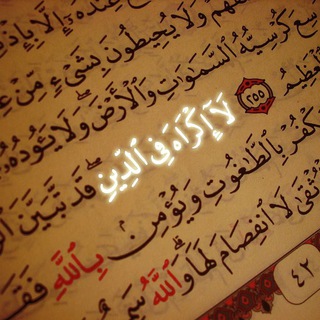 عِندَهُۥٓ إِلَّا بِإِذْ
وَلَا يُحِيطُونَ بِشَىْءٍ مِّنْ عِ
سِعَ كُرْسِيُّهُ ٱلسَّمَٰوَٰتِ وَٱلْأَرْضَ ۖ وَلَا يَـُٔودُهُۥ
لْعَظِيمُ ٢٥٥ لَآ إِكْرَاهَ فِى ٱلدِّينِ ۖ قَد تَّبَيَّنَ ٱلر
يَكْفُرْ بِٱلطَّٰغُوتِ وَيُؤْمِنۢ بِٱللَّهِ فَقَدِ
ثْقَىٰ لَا ٱنفِصَامَ لَهَا ۗ وَٱللَّهُ سَمِي
٤٢